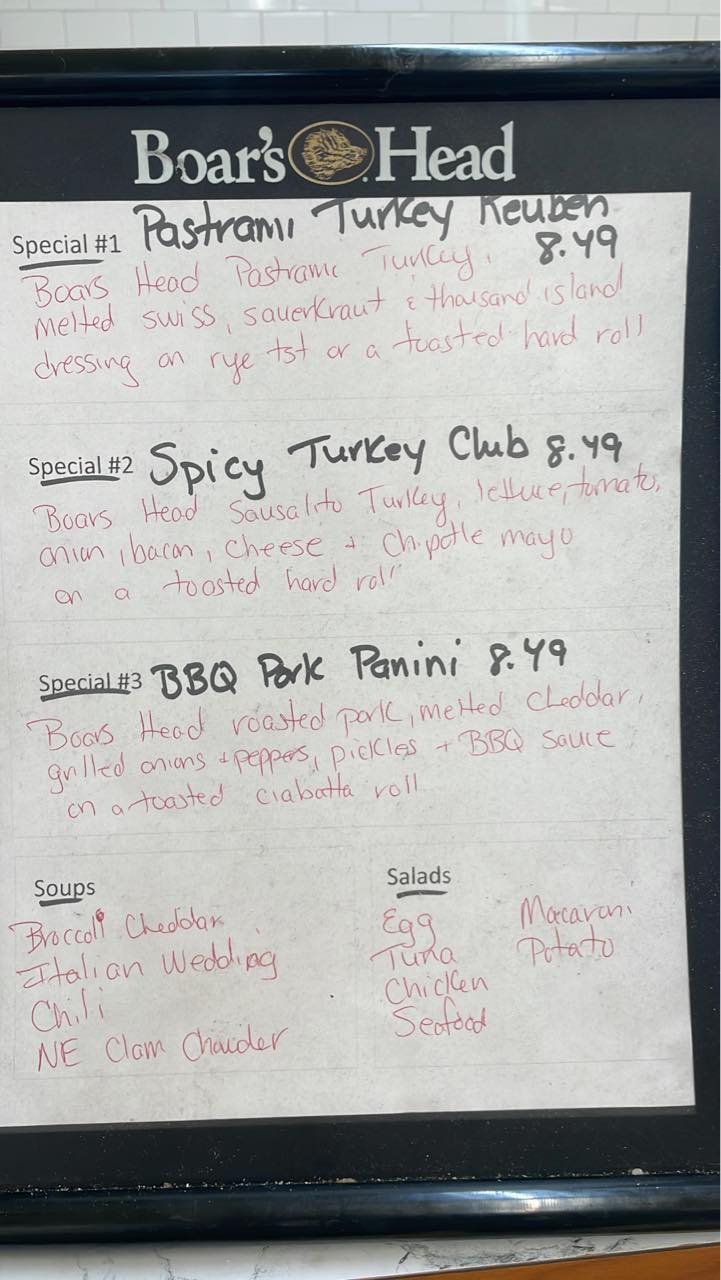 Boar's Head
Special #1 Pastrami Turkey Reuben
8.49
Boars Head Pastrami Turkey,
melted swiss, sauerkraut & thousand island
dressing on rye tst or a toasted hard roll
Special #2 Spicy Turkey Club 8.49
Boars Head Sausalito Turkey, lettuce, tomato,
onion, bacon, cheese + Chipotle mayo
on a toasted hard roll
Special #3 BBQ Pork Panini 8.49
Boars Head roasted pork, melted cheddar,
grilled onions + peppers, pickles + BBQ sauce
on a toasted ciabatta roll
Soups
Broccoli Cheddar
Italian Wedding
Chili
NE Clam Chowder
Salads
Egg Macaroni
Tuna Potato
Chicken
Seafood